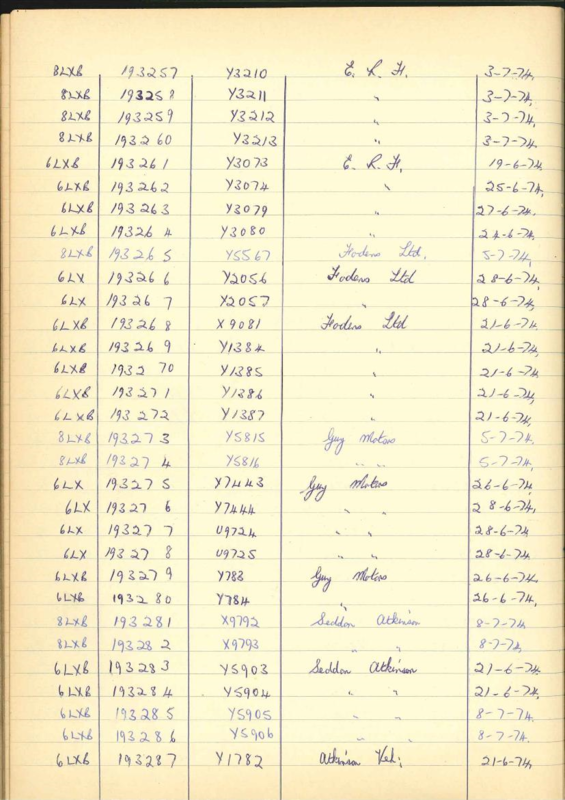 8LXB 193257 Y3210 E. R. F. 3-7-74,
8LXB 193258 Y3211 " 3-7-74,
8LXB 193259 Y3212 " 3-7-74,
8LXB 193260 Y3213 " 3-7-74,
6LXB 193261 Y3073 E. R. F. 19-6-74
6LXB 193262 Y3074 " 25-6-74,
6LXB 193263 Y3079 " 27-6-74,
6LXB 193264 Y3080 " 24-6-74,
8LXB 193265 Y5567 Fodens Ltd. 5-7-74,
6LX 193266 Y2056 Fodens Ltd 28-6-74,
6LX 193267 Y2057 " 28-6-74,
6LXB 193268 X9081 Fodens Ltd 21-6-74,
6LXB 193269 Y1384 " 21-6-74,
6LXB 193270 Y1385 " 21-6-74,
6LXB 193271 Y1386 " 21-6-74,
6LXB 193272 Y1387 " 21-6-74,
8LXB 193273 Y5815 Guy Motors 5-7-74,
8LXB 193274 Y5816 " " 5-7-74,
6LX 193275 Y7443 Guy Motors 26-6-74,
6LX 193276 Y7444 " " 28-6-74,
6LX 193277 U9724 " " 28-6-74
6LX 193278 U9725 " " 28-6-74,
6LXB 193279 Y783 Guy Motors 26-6-74,
6LXB 193280 Y784 " 26-6-74,
8LXB 193281 X9792 Seddon Atkinson 8-7-74,
8LXB 193282 X9793 " " 8-7-74,
6LXB 193283 Y5903 Seddon Atkinson 21-6-74,
6LXB 193284 Y5904 " " 21-6-74,
6LXB 193285 Y5905 " " 8-7-74,
6LXB 193286 Y5906 " " 8-7-74,
6LXB 193287 Y1782 Atkinson Veh; 21-6-74,